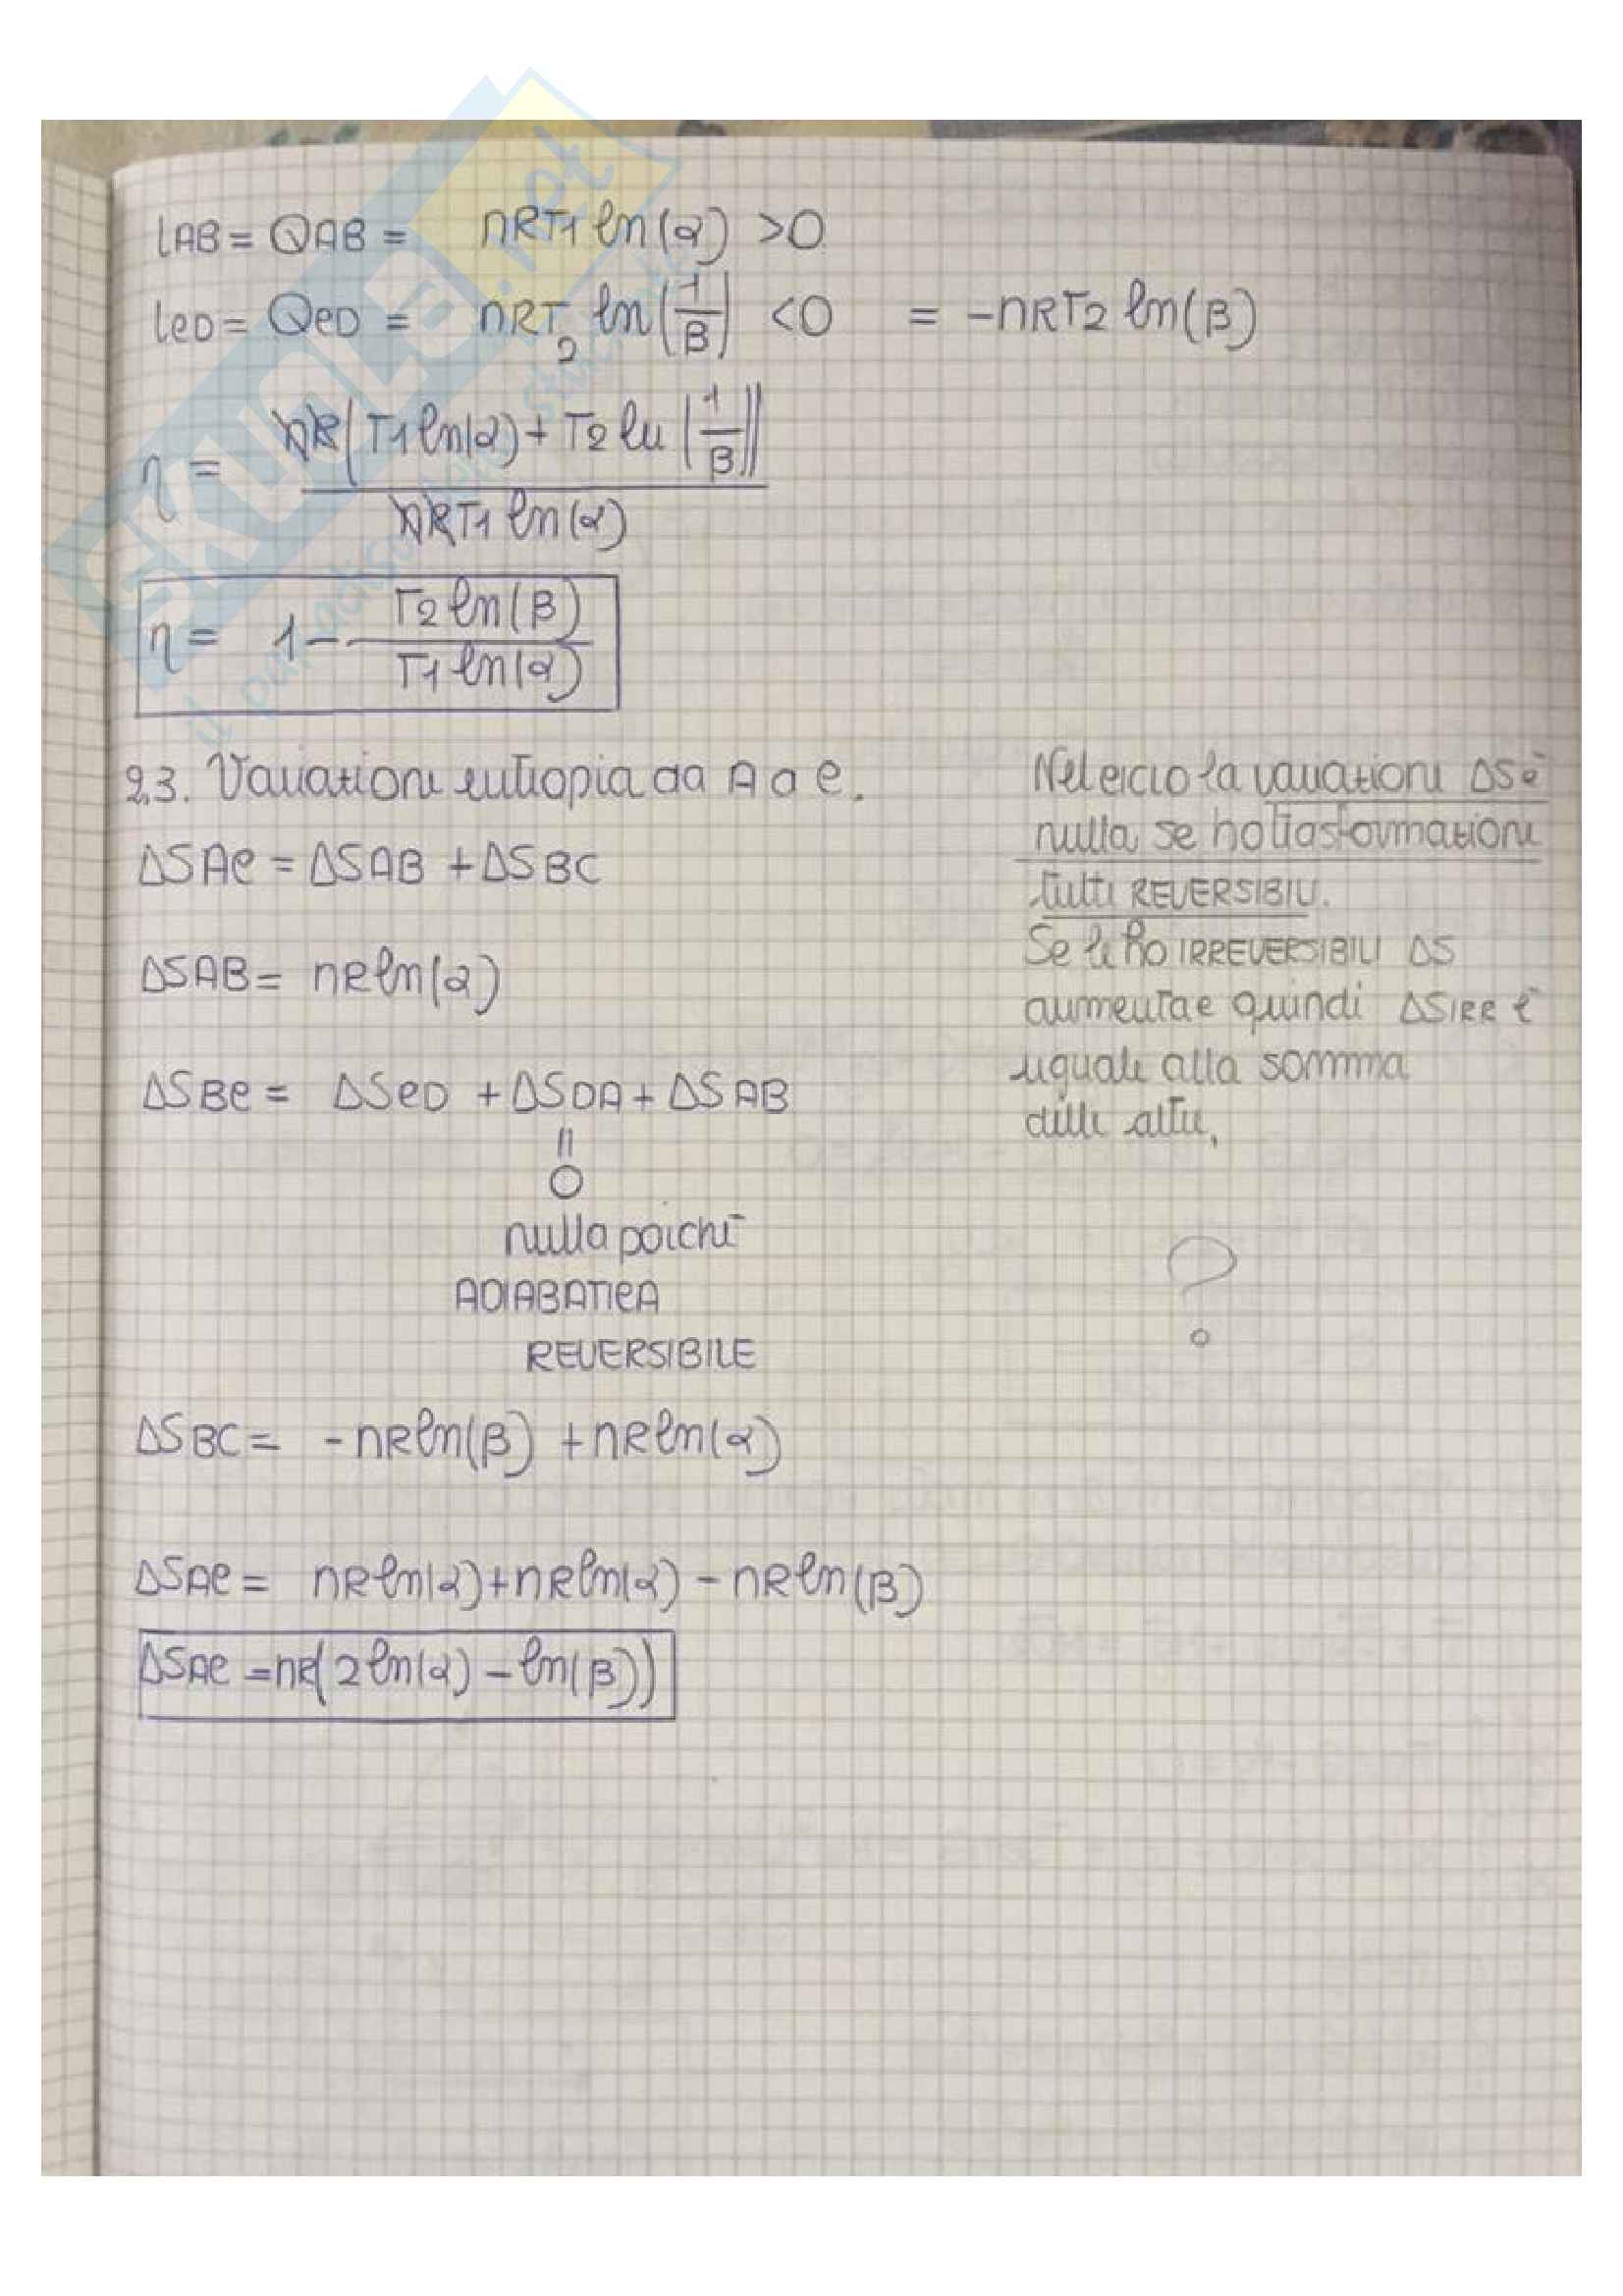 LAB = QAB = nRT1 ln(α) >0
LCD = QCD = nRT2 ln(1/β) <0 = -nRT2 ln(β)
η = nR(T1 ln(α) + T2 ln(1/β)) / nRT1 ln(α)
η = 1 - T2 ln(β) / T1 ln(α)
2.3. Variazione entropia da A a C.
ΔSAC = ΔSAB + ΔSBC
ΔSAB = nR ln(α)
ΔSBC = ΔSCD + ΔSDA + ΔSAB
||
0
nulla poiché
ADIABATICA
REVERSIBILE
ΔSBC = - nR ln(β) + nR ln(α)
ΔSAC = nR ln(α) + nR ln(α) - nR ln(β)
ΔSAC = nR(2 ln(α) - ln(β))
Nel ciclo la variazione ΔS è
nulla se ho trasformazioni
tutte REVERSIBILI.
Se le ho IRREVERSIBILI ΔS
aumenta e quindi ΔSIRR è
uguale alla somma
delle altre.
?
SKUOLA.net
il punto